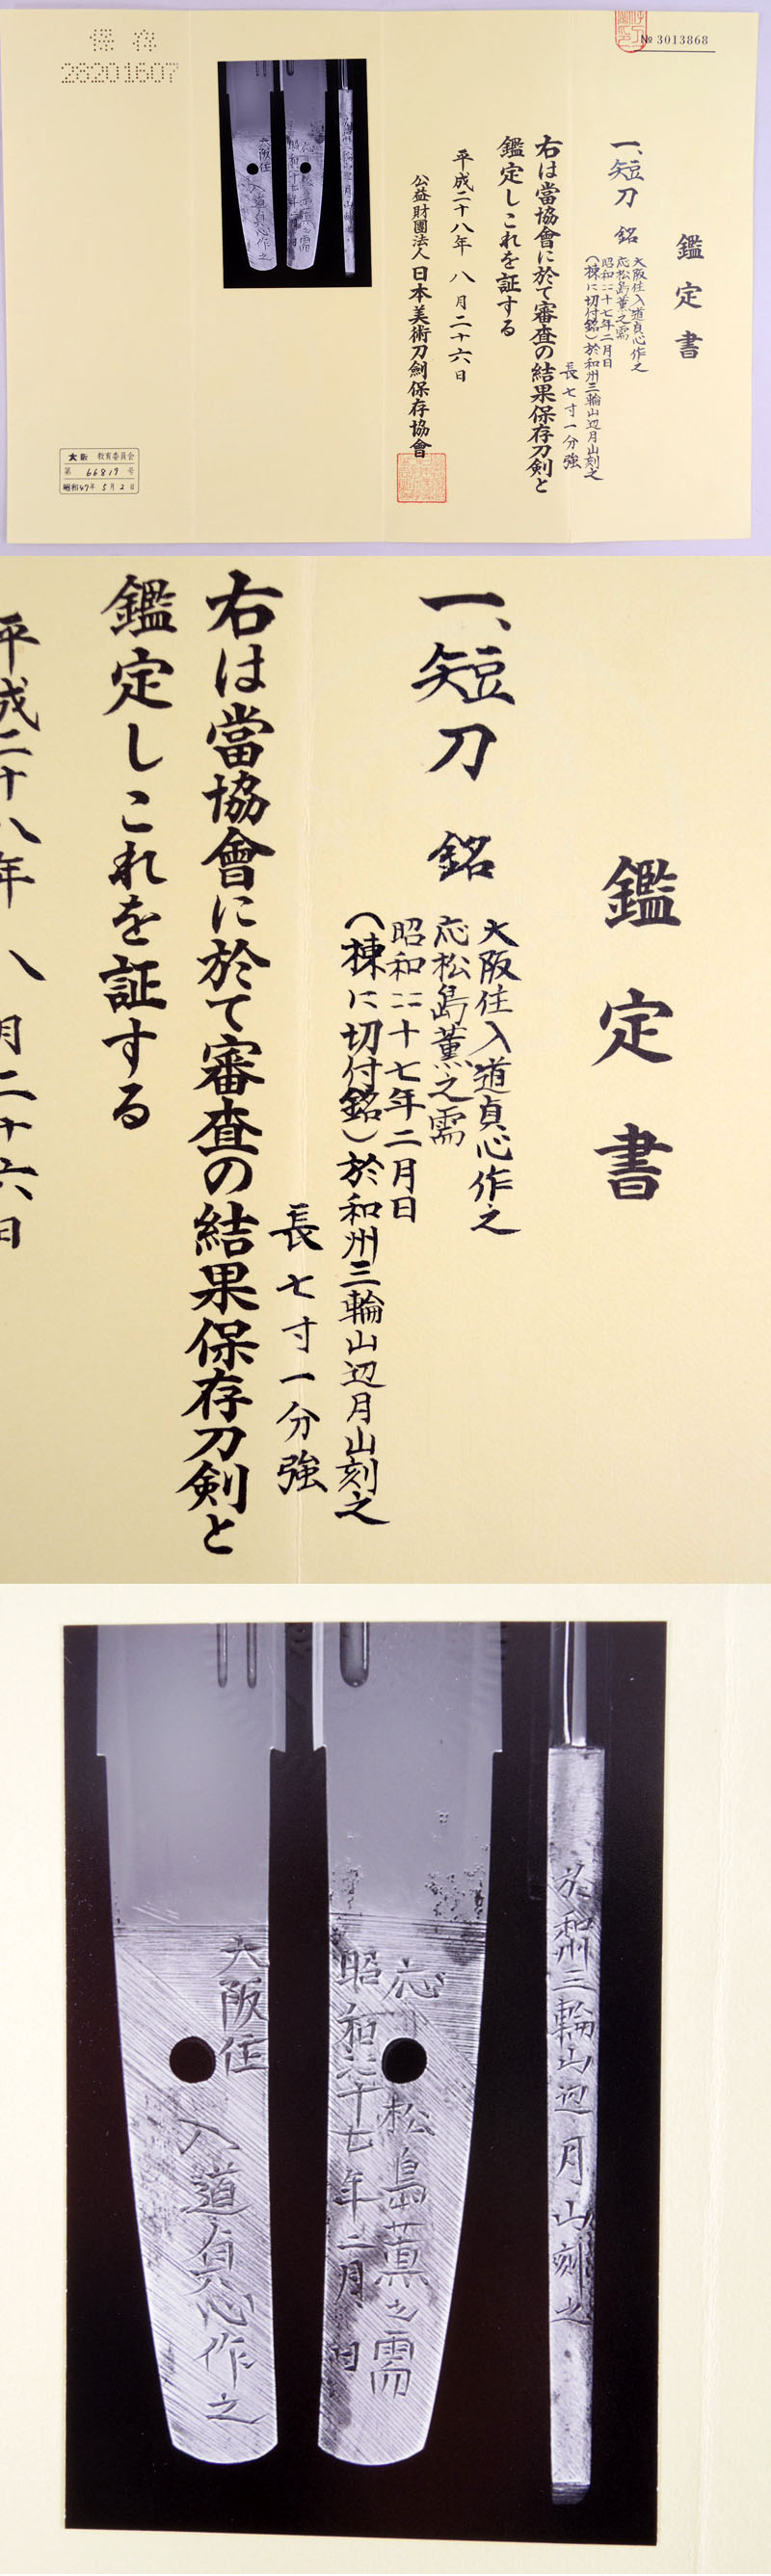 № 3013868
鑑定書
一、短刀 銘
大阪住入道貞心作之
応松島薫之需
昭和二十七年二月日
（棟に切付銘）於和州三輪山辺月山刻之
長七寸一分強
右は當協會に於て審査の結果保存刀剣と
鑑定しこれを証する
平成二十八年 八月二十六日
公益財團法人 日本美術刀劍保存協會
大阪住
応松島薫之需
昭和二十七年二月日
入道貞心作之
於和州三輪山辺月山刻之
保存
28201607
大阪 教育委員会
第 66819 号
昭和47年 5月 2日
鑑定書
一、短刀 銘
大阪住入道貞心作之
応松島薫之需
昭和二十七年二月日
（棟に切付銘）於和州三輪山辺月山刻之
長七寸一分強
右は當協會に於て審査の結果保存刀剣と
鑑定しこれを証する
平成二十八年 八月二十六日
大阪住入道貞心作之
応松島薫之需
昭和二十七年二月日
於和州三輪山辺月山刻之